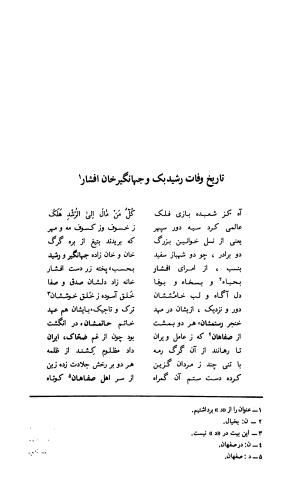 تاریخ وفات رشیدبک و جهانگیرخان افشار¹
آه کز شعبده بازی فلک
کُلُّ مَنْ مٰالَ اِلیَ الرُّشْدِ هَلَکْ
عالمی کرد سیه دور سپهر
ز خسوف و ز کسوف مه و مهر
یعنی از نسل خوانین بزرگ
که بریدند بتیغ از بره گرگ
دو برادر، چو دو شهباز سفید
خان و خان زاده جهانگیر و رشید
بنسب، از امرای افشار
بحسب، پخته زر دست افشار
بحیاء² و بسخاء و بوفا
خانه زاد دلشان صدق و صفا
دل آگاه و لب خامششان
خُلق آسوده ز خُلق خوششان³
دور و نزدیک، ازیشان در مهد
ترک و تاجیک، بایشان هم عهد
خنجر رستمشان، هر دو بمشت
خاتم حاتمشان، در انگشت
از صفاهان⁴ که ز عامل ویران
بود چون از غم ضحّاک، ایران
تا رهانند از آن گرگ رمه
داد مظلوم کِشند از ظلمه
با تنی چند ز مردان گزین
هر دو بر رخش جلادت زده زین
کرده دست ستم آن گمراه
از سر اهل صفاهان⁵ کوتاه
۱ــ عنوان را از «د» برداشتیم.
۲ــ ن: بخیال.
۳ــ این بیت در «د» نیست.
۴ــ ن: در صفهان.
۵ــ د: صفهان.